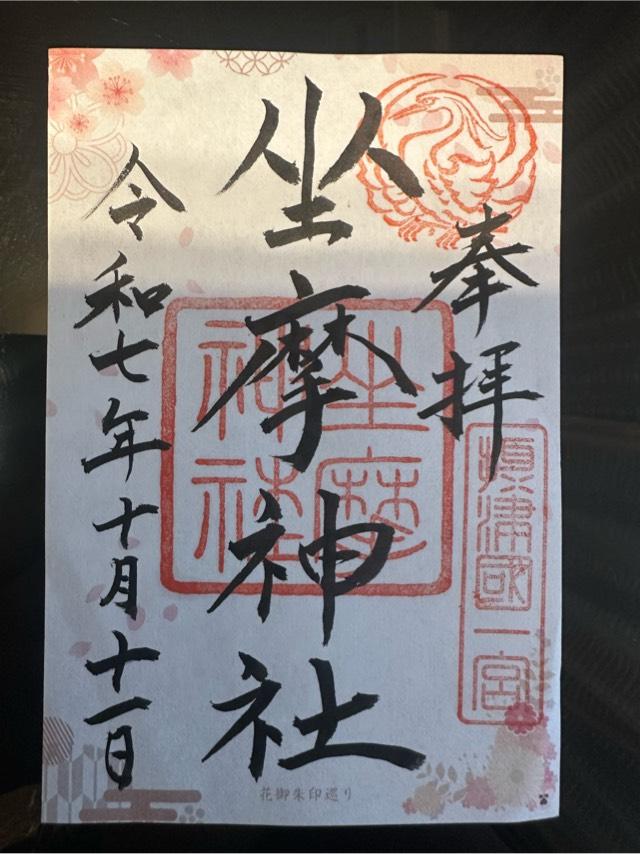 奉拝
摂津國一宮
坐摩神社
坐摩神社
令和七年十月十一日
花御朱印巡り